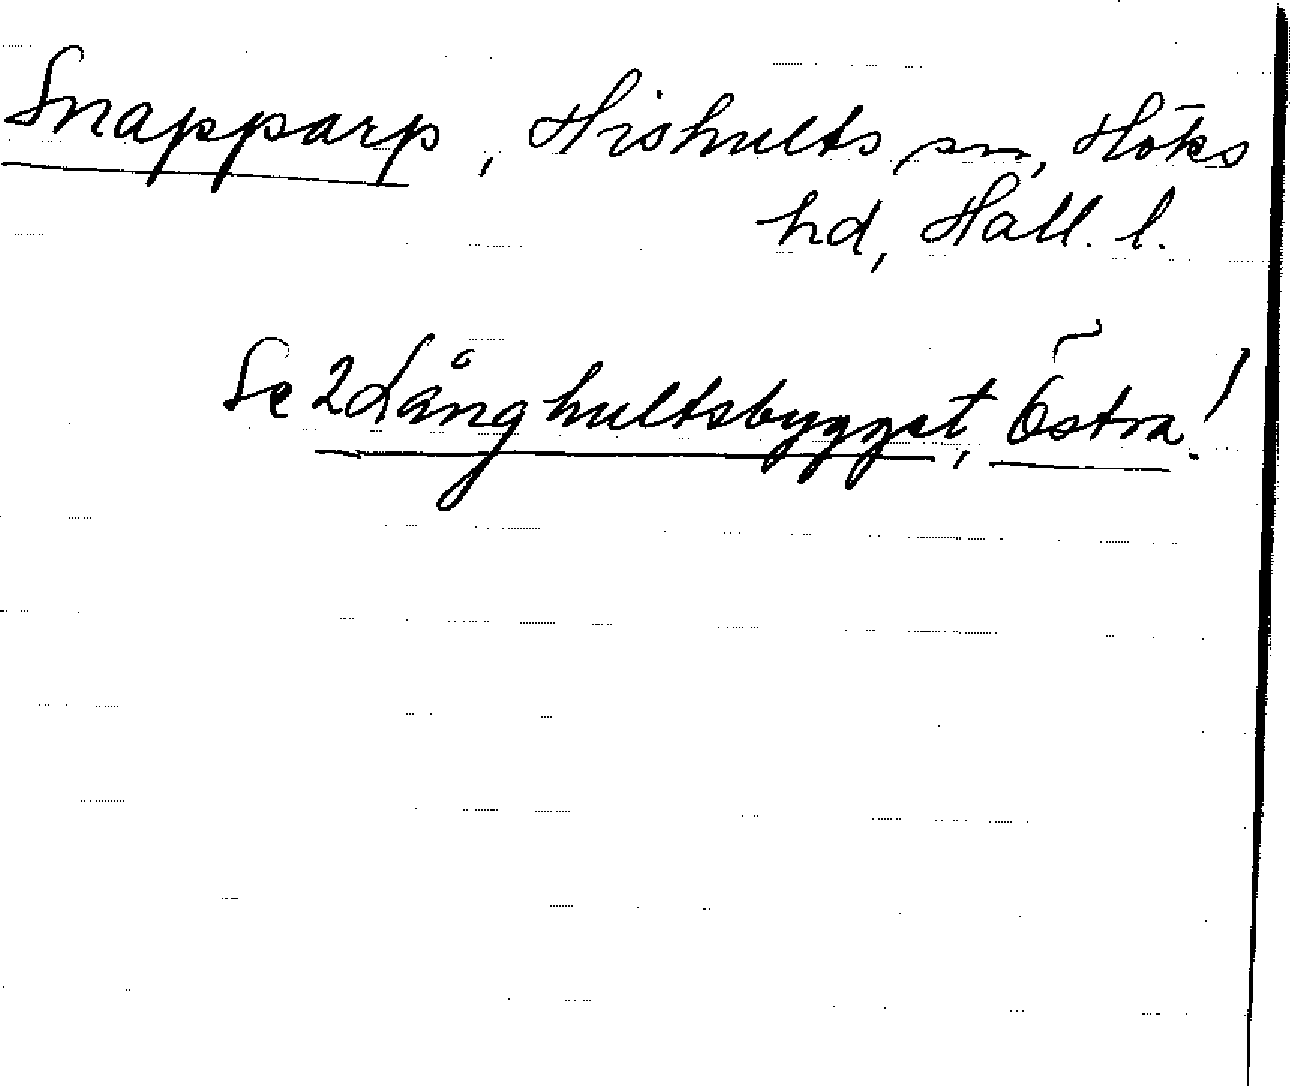 Snapparp, Hishults sn, Höks
hd, Hall. l.
Se 2 Långhultsbygget, Östra!